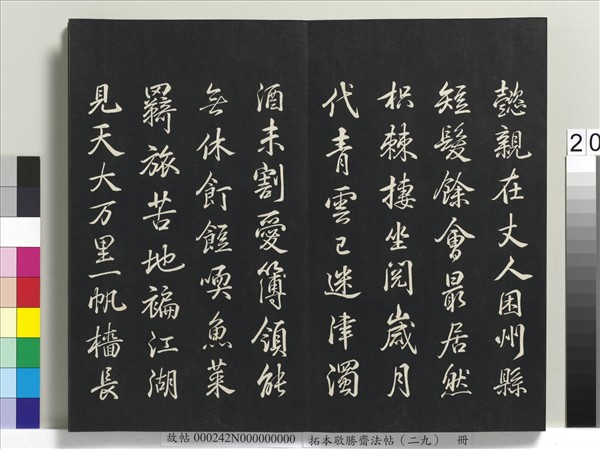 懿親在丈人困州縣
短髮餘會最居然
枳棘捿坐閱歲月
代青雲已迷津濁
酒未割愛簿領能
無休飣餖喚魚菜
羇旅苦地褊江湖
見天大万里一帆檣長
故帖 000242N000000000 拓本敬勝齋法帖（二九） 冊
20